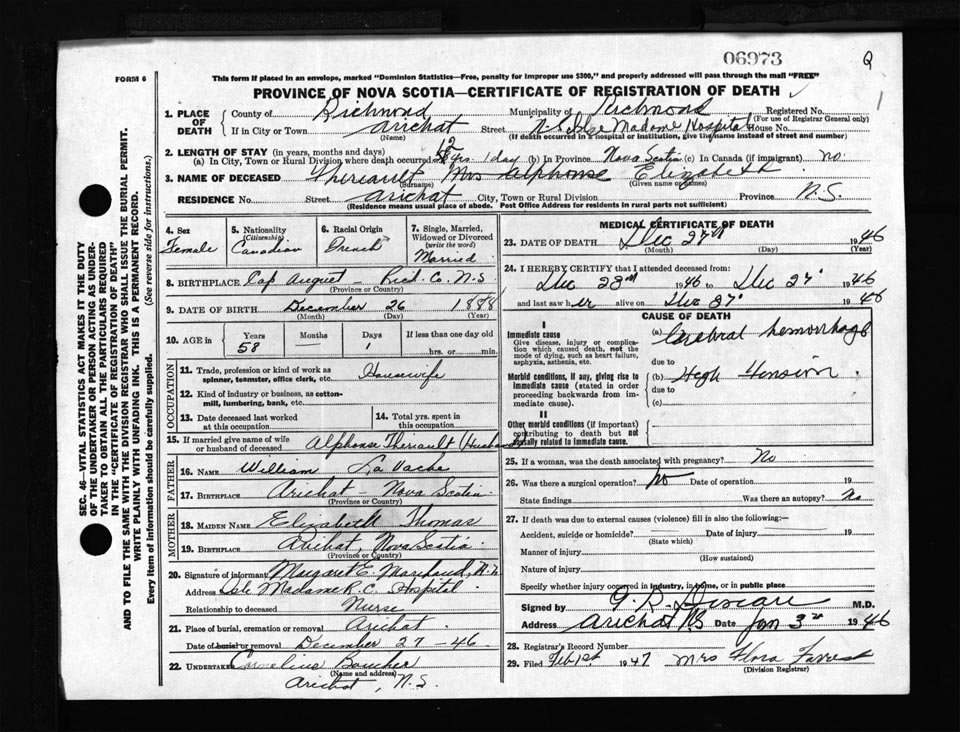 06973
Q
1
FORM 6
This form if placed in an envelope, marked "Dominion Statistics—Free, penalty for improper use $300," and properly addressed will pass through the mail "FREE"
PROVINCE OF NOVA SCOTIA—CERTIFICATE OF REGISTRATION OF DEATH
SEC. 46—VITAL STATISTICS ACT MAKES IT THE DUTY
OF THE UNDERTAKER OR PERSON ACTING AS UNDER-
TAKER TO OBTAIN ALL THE PARTICULARS REQUIRED
IN THE "CERTIFICATE OF REGISTRATION OF DEATH"
AND TO FILE THE SAME WITH THE DIVISION REGISTRAR WHO SHALL ISSUE THE BURIAL PERMIT.
WRITE PLAINLY WITH UNFADING INK. THIS IS A PERMANENT RECORD.
Every item of information should be carefully supplied. (See reverse side for instructions.)
1. PLACE OF DEATH County of Richmond Municipality of Richmond Registered No.
(For use of Registrar General only)
If in City or Town Arichat Street Isle Madame Hospital House No.
(Name) (If death occurred in a hospital or institution, give the name instead of street and number)
2. LENGTH OF STAY (in years, months and days)
(a) In City, Town or Rural Division where death occurred yrs. 1 day (b) In Province Nova Scotia (c) In Canada (if immigrant) no.
3. NAME OF DECEASED Theriault Mrs Alphonse Elizabeth
(Surname) (Given name or names)
RESIDENCE No. Street Arichat City, Town or Rural Division Province N.S.
(Residence means usual place of abode. Post Office Address for residents in rural parts not sufficient)
4. Sex Female
5. Nationality (Citizenship) Canadian
6. Racial Origin French
7. Single, Married, Widowed or Divorced (write the word) Married
8. BIRTHPLACE Cap Auguet — Rich. Co. N.S
(Province or Country)
9. DATE OF BIRTH December 26 1888
(Month) (Day) (Year)
10. AGE in Years Months Days If less than one day old
58 1 hrs. or min.
OCCUPATION
11. Trade, profession or kind of work as spinner, teamster, office clerk, etc. Housewife
12. Kind of industry or business, as cotton-mill, lumbering, bank, etc.
13. Date deceased last worked at this occupation
14. Total yrs. spent in this occupation
15. If married give name of wife or husband of deceased Alphonse Theriault (Husband)
FATHER
16. NAME William La Vache
17. BIRTHPLACE Arichat — Nova Scotia
(Province or Country)
MOTHER
18. MAIDEN NAME Elizabeth Thomas
19. BIRTHPLACE Arichat, Nova Scotia
(Province or Country)
20. Signature of informant Margaret E. Marchand, R.N.
Address Isle Madame R.C. Hospital
Relationship to deceased Nurse
21. Place of burial, cremation or removal Arichat
Date of burial or removal December 27-46
22. UNDERTAKER Cornelius Boucher
(Name and address)
Arichat, N.S.
MEDICAL CERTIFICATE OF DEATH
23. DATE OF DEATH Dec 27th 1946
(Month) (Day) (Year)
24. I HEREBY CERTIFY that I attended deceased from:
Dec 23rd 1946 to Dec 27 1946
and last saw her alive on Dec 27 1946
CAUSE OF DEATH
I
Immediate cause
Give disease, injury or complication which caused death, not the mode of dying, such as heart failure, asphyxia, asthenia, etc.
(a) Cerebral hemorrhage
due to
Morbid conditions, if any, giving rise to immediate cause (stated in order proceeding backwards from immediate cause).
(b) High Tension.
due to
(c)
II
Other morbid conditions (if important) contributing to death but not causally related to immediate cause.
25. If a woman, was the death associated with pregnancy? No
26. Was there a surgical operation? No Date of operation 19
State findings Was there an autopsy? No
27. If death was due to external causes (violence) fill in also the following:—
Accident, suicide or homicide? Date of injury 19
(State which)
Manner of injury
(How sustained)
Nature of injury
Specify whether injury occurred in industry, in home, or in public place
Signed by M.D.
Address Arichat NS Date Jan 3rd 1946
28. Registrar's Record Number
29. Filed Feb 1st 1947 Mrs Flora Forrest
(Division Registrar)